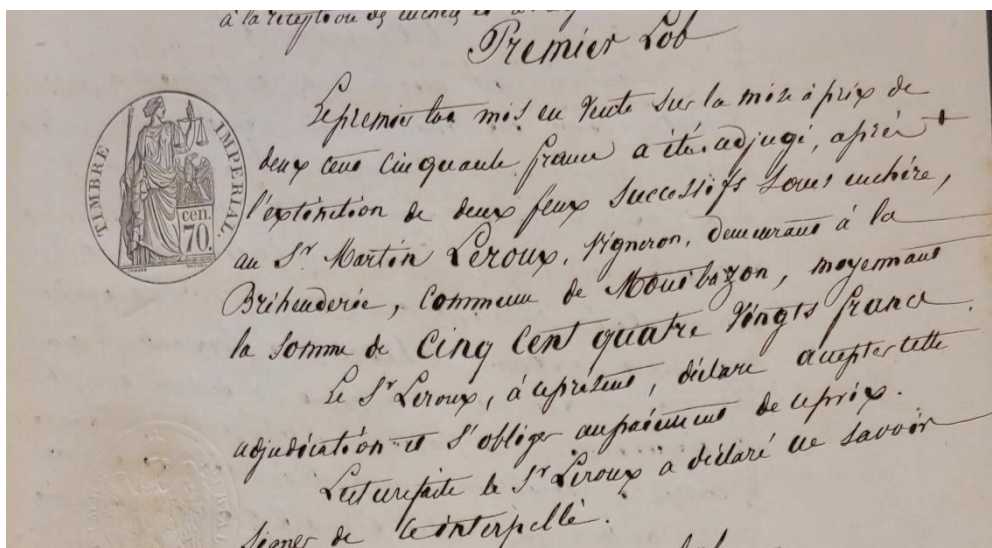 à la réception des enchères et
Premier Lot
Le premier lot mis en Vente sur la mise à prix de
deux cent cinquante francs a été adjugé, après
l'extinction de deux feux successifs sans enchère,
au Sr Martin Leroux, Vigneron, demeurant à la
Bréhenderée, Commune de Montbazon, moyennant
la somme de Cinq Cent quatre Vingts francs.
Le Sr Leroux, à ce présent, déclare accepter cette
adjudication et s'obliger au paiement de ce prix.
Lecture faite le Sr Leroux a déclaré ne savoir
signer de ce interpellé.
TIMBRE IMPERIAL.
cen.
70.